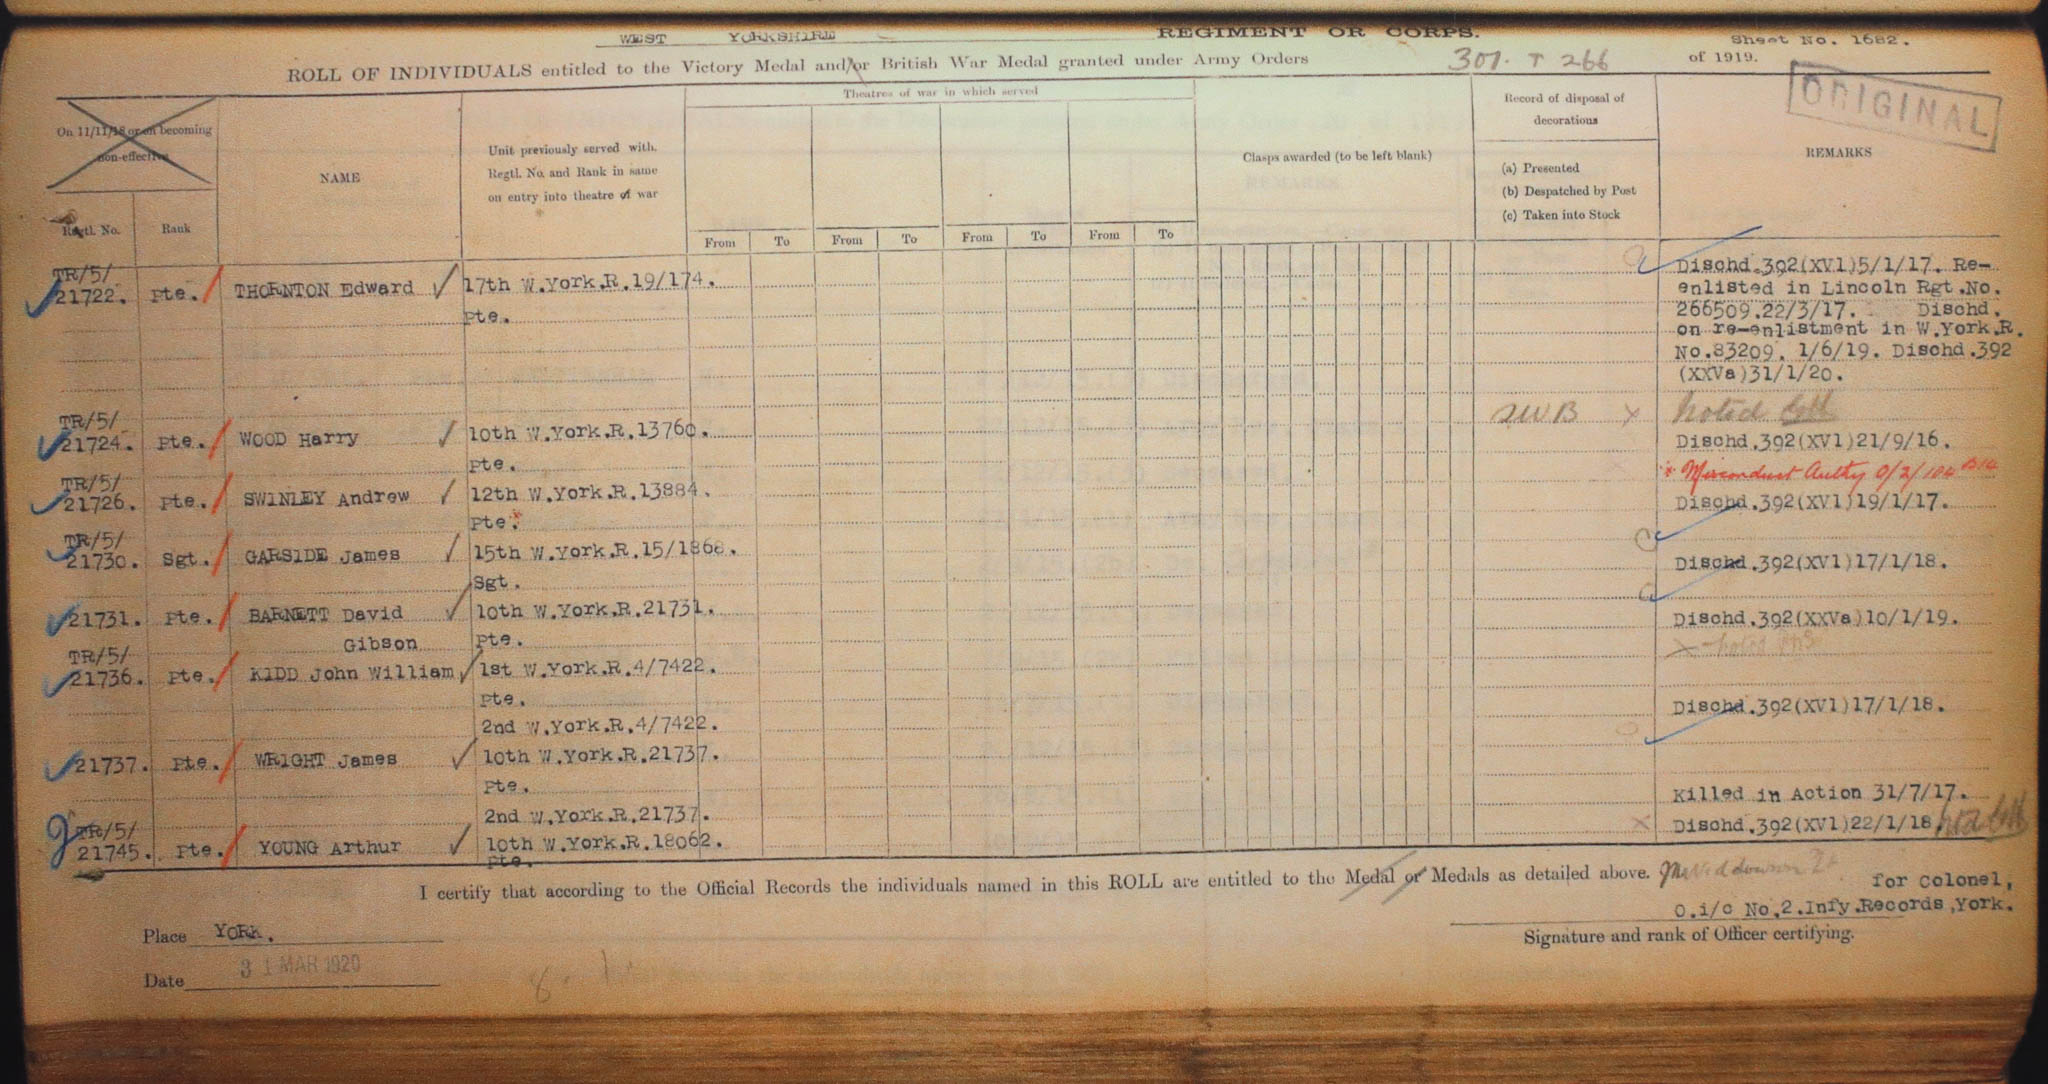 WEST YORKSHIRE REGIMENT OR CORPS. Sheet No. 1682.
ROLL OF INDIVIDUALS entitled to the Victory Medal and/or British War Medal granted under Army Orders 301. + 266 of 1919.
ORIGINAL
On 11/11/18 or on becoming non-effective
Regtl. No.
Rank
NAME
Unit previously served with. Regtl. No. and Rank in same on entry into theatre of war
Theatres of war in which served
From To From To From To From To
Clasps awarded (to be left blank)
Record of disposal of decorations
(a) Presented
(b) Despatched by Post
(c) Taken into Stock
REMARKS
TR/5/
21722. Pte. THORNTON Edward 17th W.York.R.19/174.
Pte.
Dischd.392(XVI)5/1/17. Re-
enlisted in Lincoln Rgt.No.
266509.22/3/17. Dischd.
on re-enlistment in W.York.R.
No.83209. 1/6/19. Dischd.392
(XXVa)31/1/20.
TR/5/
21724. Pte. WOOD Harry 10th W.York.R.13760.
Pte.
SWB x Noted
Dischd.392(XVI)21/9/16.
TR/5/
21726. Pte. SWINLEY Andrew 12th W.York.R.13884.
Pte.
* Misconduct Authy 0/2/104
Dischd.392(XVI)19/1/17.
TR/5/
21730. Sgt. GARSIDE James 15th W.York.R.15/1868.
Sgt.
Dischd.392(XVI)17/1/18.
21731. Pte. BARNETT David 10th W.York.R.21731.
Gibson Pte.
Dischd.392(XXVa)10/1/19.
x noted
TR/5/
21736. Pte. KIDD John William 1st W.York.R.4/7422.
Pte.
2nd W.York.R.4/7422.
Dischd.392(XVI)17/1/18.
21737. Pte. WRIGHT James 10th W.York.R.21737.
Pte.
2nd W.York.R.21737.
Killed in Action 31/7/17.
TR/5/
21745. Pte. YOUNG Arthur 10th W.York.R.18062.
Pte.
x Dischd.392(XVI)22/1/18.
I certify that according to the Official Records the individuals named in this ROLL are entitled to the Medal or Medals as detailed above.
for Colonel,
O.i/c No.2.Infy.Records,York.
Signature and rank of Officer certifying.
Place YORK.
Date 31 MAR 1920
8.